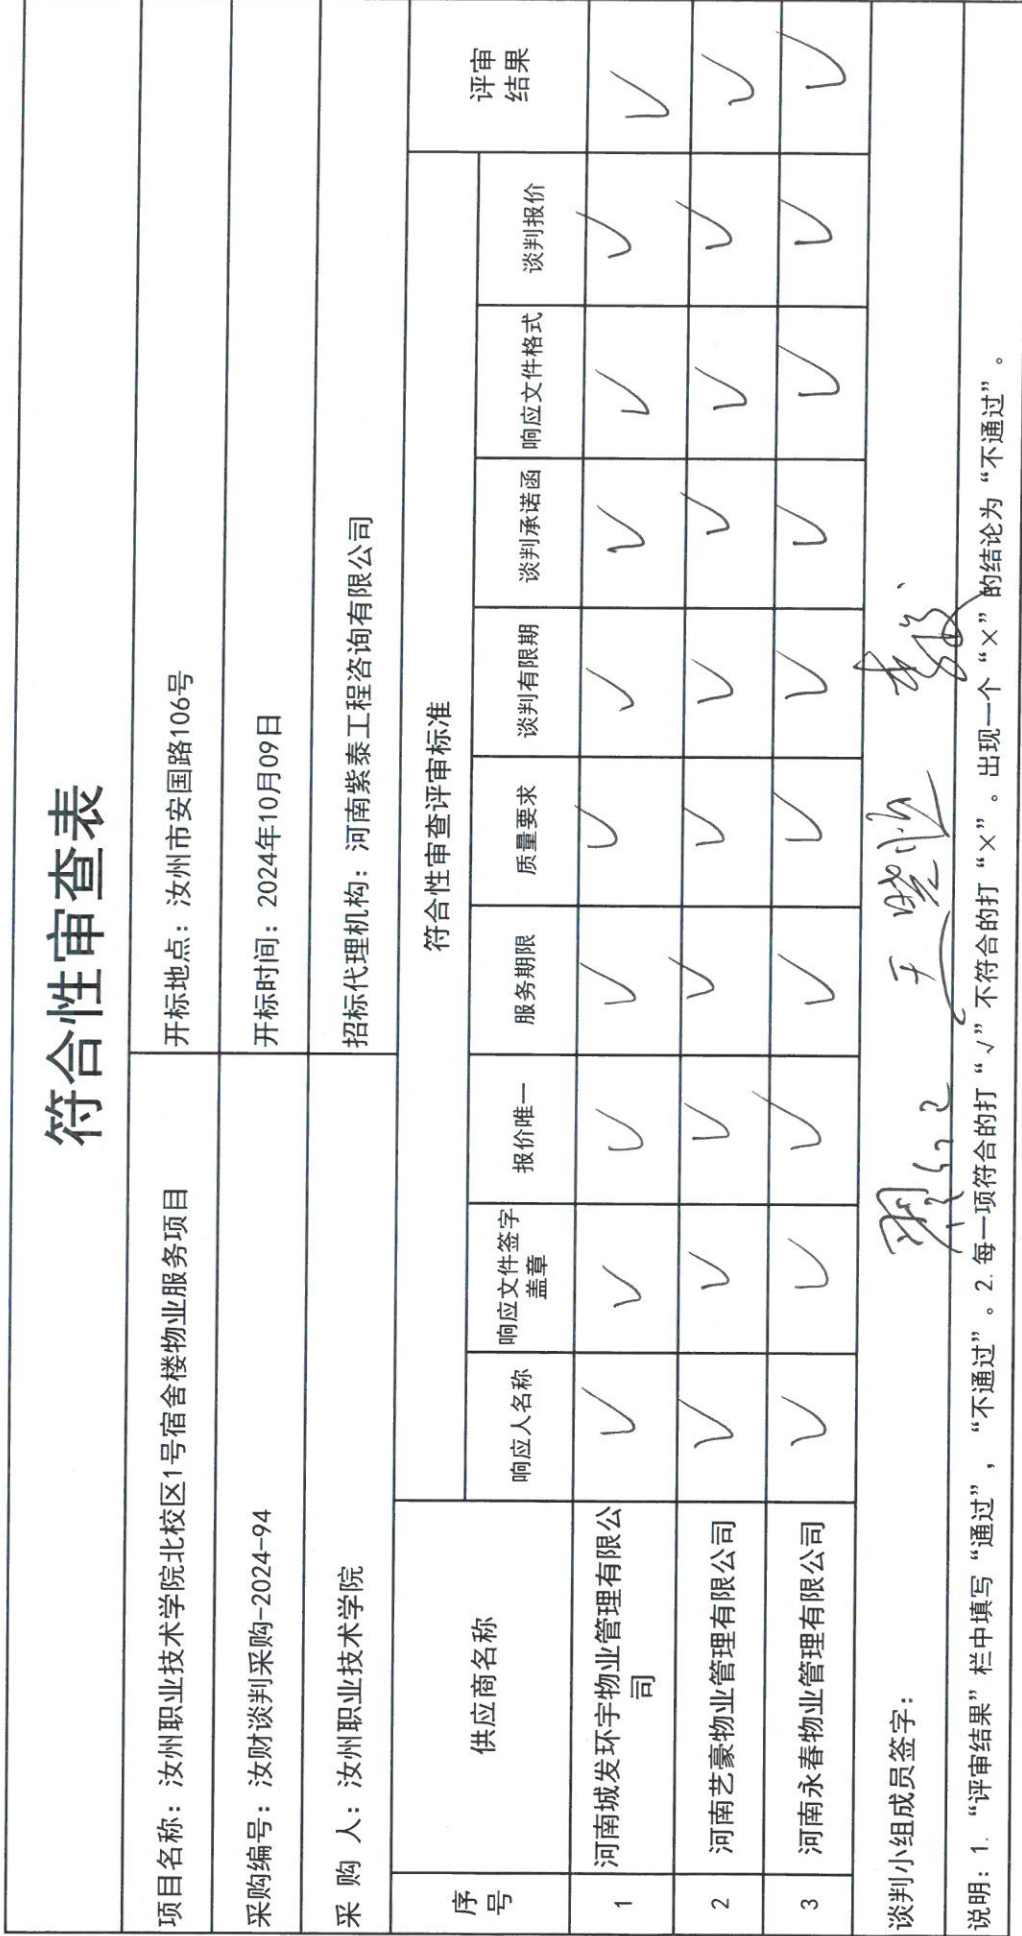 符合性审查表
项目名称：汝州职业技术学院北校区1号宿舍楼物业服务项目 开标地点：汝州市安国路106号
采购编号：汝财谈判采购-2024-94 开标时间：2024年10月09日
采 购 人：汝州职业技术学院 招标代理机构：河南紫泰工程咨询有限公司
序号 供应商名称 符合性审查评审标准 评审结果
响应人名称 响应文件签字盖章 报价唯一 服务期限 质量要求 谈判有限期 谈判承诺函 响应文件格式 谈判报价
1 河南城发环宇物业管理有限公司 √ √ √ √ √ √ √ √ √ √
2 河南艺豪物业管理有限公司 √ √ √ √ √ √ √ √ √ √
3 河南永春物业管理有限公司 √ √ √ √ √ √ √ √ √ √
谈判小组成员签字：
说明：1. “评审结果”栏中填写“通过”，“不通过”。2. 每一项符合的打“√”不符合的打“×”。出现一个“×”的结论为“不通过”。